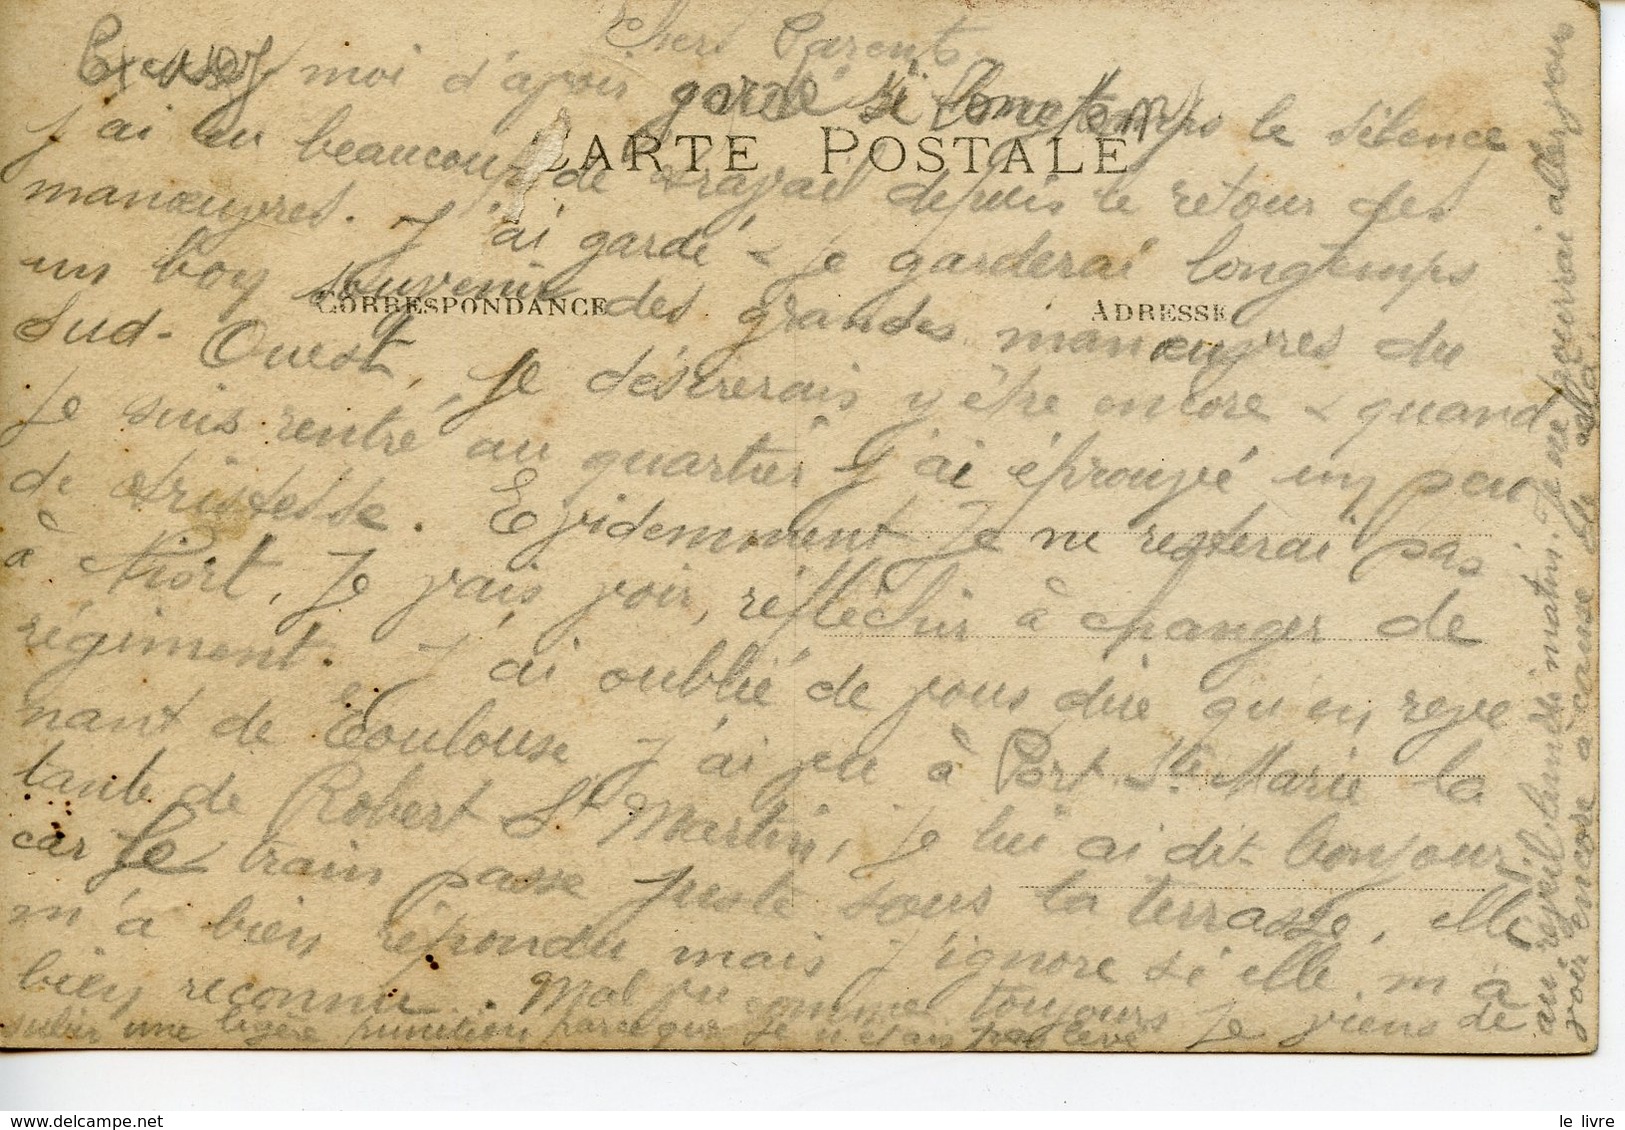 Chers Parents
Excusez moi d'avoir gardé si longtemps le silence
CARTE POSTALE
J'ai eu beaucoup de travail depuis le retour des
manœuvres. J'ai gardé & je garderai longtemps
un bon souvenir des grandes manœuvres du
CORRESPONDANCE
ADRESSE
Sud-Ouest, Je désirerais y être encore & quand
je suis rentré au quartier j'ai éprouvé un peu
de tristesse. Evidemment je ne resterai pas
à Niort, Je vais voir, réfléchir à changer de
régiment. J'ai oublié de vous dire qu'en reve
nant de Toulouse j'ai vu à Port Ste Marie la
tante de Robert St Martin, je lui ai dit bonjour
car le train passe juste sous la terrasse, elle
m'a bien répondu mais j'ignore si elle m'a
bien reconnu. Mal vu comme toujours je viens de
subir une légère punition parce que je n'étais pas levé
au réveil lundi matin. Je ne pourrai aller vous
voir encore à cause de cela
le livre